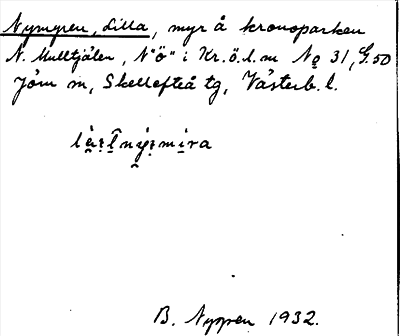 Nymyren, Lilla, myr å kronoparken
N. Mulltjälen, N"Ö" i Kr.ö.l.m No 31, G.50
Jörn sn, Skellefteå tg, Västerb. l.
B. Nyppen 1932.